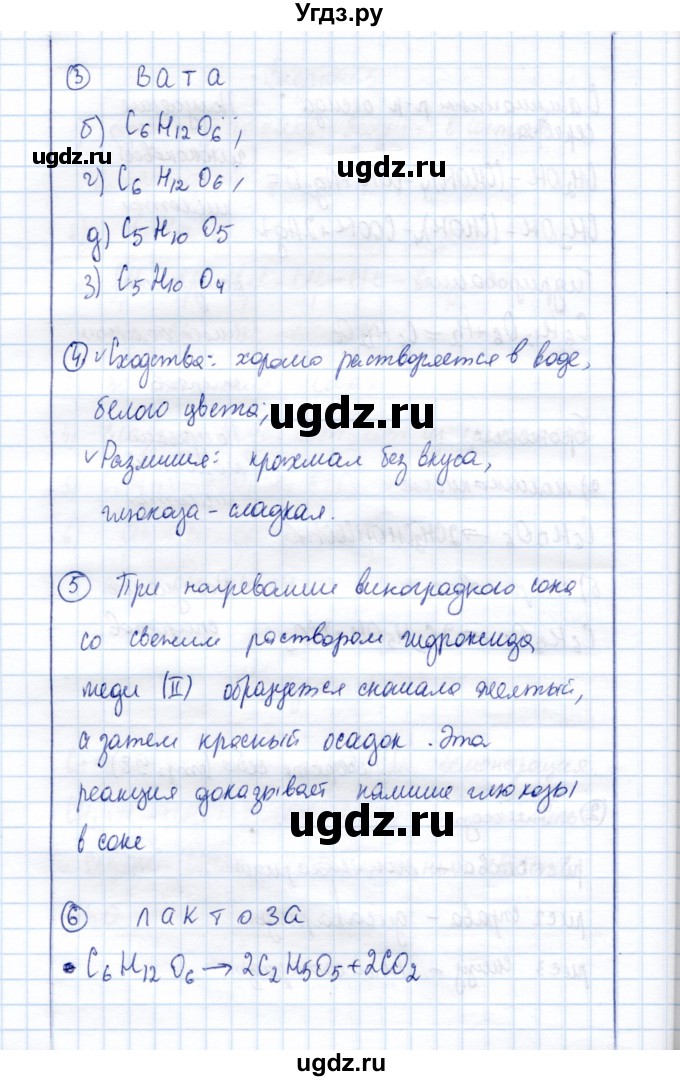 Угдз.ру
③ ВАТА
б) C₆H₁₂O₆;
ugdz.ru
ugdz.ru
г) C₆H₁₂O₆;
д) C₅H₁₀O₅
з) C₅H₁₀O₄
④ ✓Сходства: хорошо растворяется в воде,
белого цвета;
ugdz.ru
✓Различия: крахмал без вкуса,
глюкоза - сладкая.
⑤ При нагревании виноградного сока
со свежим раствором гидроксида
меди (II) образуется сначала желтый,
а затем красный осадок. Эта
реакция доказывает наличие глюкозы
ugdz.ru
в соке
⑥ ЛАКТОЗА
• C₆H₁₂O₆→2C₂H₅O₅+2CO₂
ugdz.ru